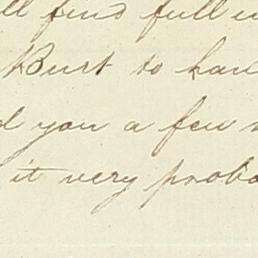 ll find full i
Burt to hav
d you a few
it very proba